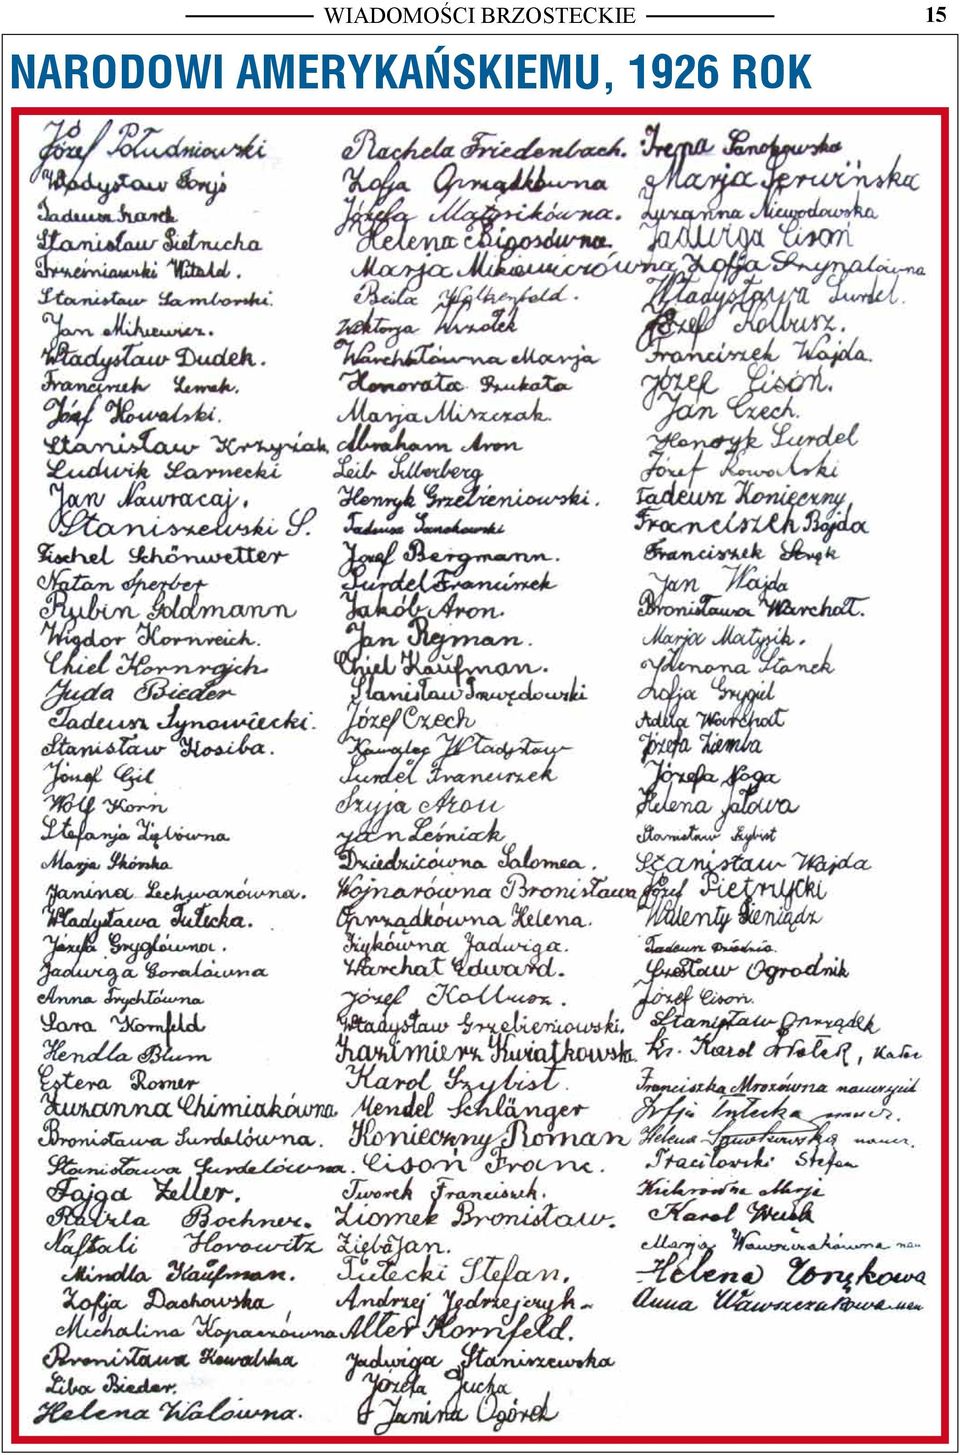 WIADOMOŚCI BRZOSTECKIE 15
NARODOWI AMERYKAŃSKIEMU, 1926 ROK
Józef Południowski
Władysław Foryś
Tadeusz
Stanisław Sietnicha
Trześniawski Witold.
Stanisław Samborski.
Jan Mikiewicz.
Władysław Dudek.
Franciszek
Józef Kowalski.
Stanisław Krzyżak,
Ludwik Sarnecki
Jan Nawracaj.
Staniszewski S.
Fischel Schönwetter
Natan Sperber
Rubin Goldmann
Wigdor Kornreich.
Chiel Kornrajch
Juda Bieder
Tadeusz Synowiecki.
Stanisław Kosiba.
Józef Gil
Wolf Korn
Stefanja Ziębówna
Marja Skórska
Janina Lechwarówna.
Władysława Tułecka.
Józefa Gryglówna.
Jadwiga Goralówna
Anna Frychtówna
Sara Kornfeld
Hendla Blum
Estera Romer
Zuzanna Chimiakówna
Bronisława Surdelówna.
Stanisława Surdelówna.
Fajga Zeller.
Rajzla Bochner.
Naftali Horowitz
Mindla Kaufman.
Zofja Dachowska
Michalina Kopaczówna
Bronisława Kowalska
Liba Bieder.
Helena Walowna.
Rachela Friedenbach.
Zofja Oprządkówna
Józefa Matysikówna.
Helena Bigosówna.
Marja Mikiewiczówna
Beila
Wiktorja Wrzołek
Warchałówna Marja
Honorata Szukała
Marja Miszczak.
Abraham Aron
Leib Silberberg
Henryk Grzebieniowski.
Tadeusz Sanokowski
Józef Bergmann.
Surdel Franciszek
Jakób Aron.
Jan Rejman.
Chiel Kaufman.
Stanisław Smwędowski
Józef Czech
Kawalec Władysław
Surdel Franciszek
Szyja Aron
Jan Leśniak
Dziedzicówna Salomea.
Wojnarówna Bronisława
Oprządkówna Helena.
Ziębówna Jadwiga.
Warchał Edward.
Józef Kolbusz.
Władysław Grzebieniowski.
Kazimierz Kwiatkowski.
Karol Szybist.
Mendel Schlänger
Konieczny Roman
Cisoń Franc.
Tworek Franciszek.
Ziomek Bronisław.
Zięba Jan.
Tułecki Stefan.
Andrzej Jędrzejczyk
Alter Kornfeld.
Jadwiga Staniszewska
Józefa Jucha
Janina Ogórek
Irena Sanokowska
Marja Serwińska
Zuzanna Niewodowska
Jadwiga Cisoń
Zofja Szynalówna
Władysława Surdel.
Józef Kolbusz.
Franciszek Wajda.
Józef Cisoń.
Jan Czech.
Henryk Surdel
Józef Kowalski
Tadeusz Konieczny
Franciszek Bajda
Franciszek Stręk
Jan Wajda
Bronisława Warchał.
Marja Matysik.
Zenona Stanek
Zofja Grygiel
Adela Warchał
Józefa Ziemba
Józefa Noga
Helena Jałowa
Stanisław Szybist
Stanisław Wajda
Józef Pietrzycki
Walenty Pieniądz
Tadeusz
Czesław Ogrodnik
Józef Cisoń.
Stanisław Oprządek
Ks. Karol Wołek,
Franciszka Mrozówna nauczyciel
Zofja Tułecka naucz.
Helena Sanokowska naucz.
Stefan
Marja
Karol
Marja Wawszczakówna nau
Helena
Anna Wawszczakowa nau